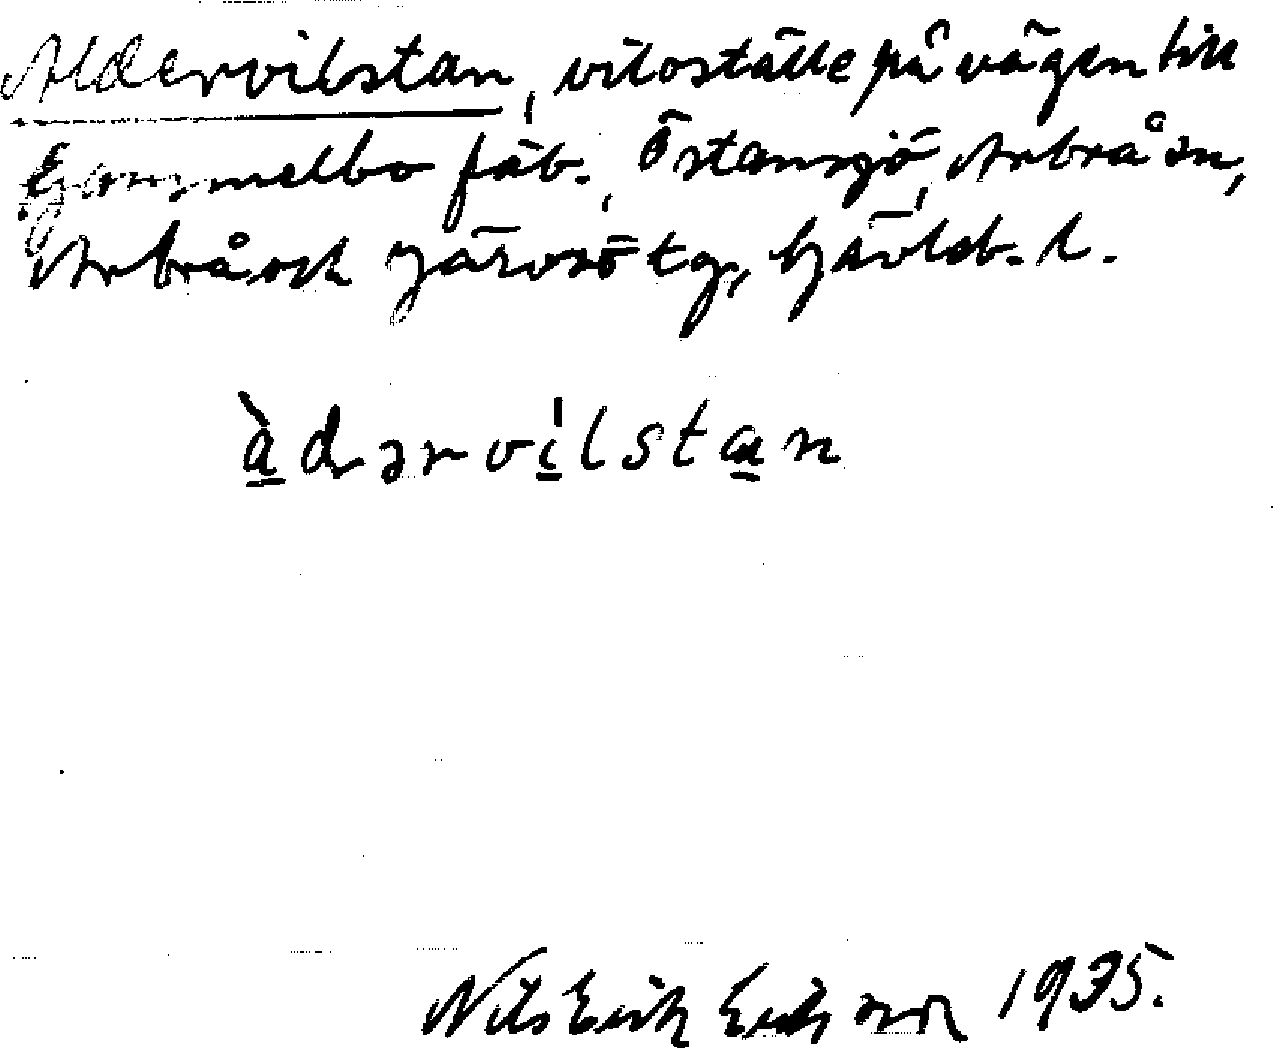 Aldervilstan, viloställe på vägen till
Gammelbo fäb., Östansjö, Arbrå sn,
Arbrå och Järvsö tg, Gävleb. l.
àdərvilstan
Nils Erik Eriksson 1935.